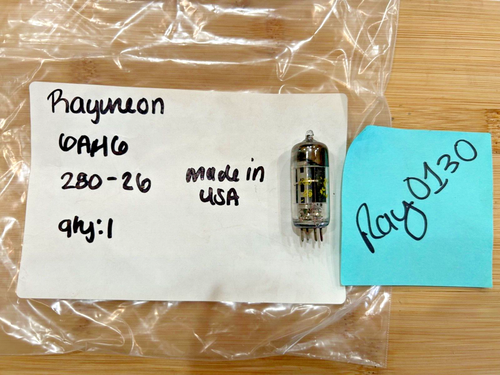 Raytheon
6AH6
280-26
qty:1
made in
USA
Ray0130